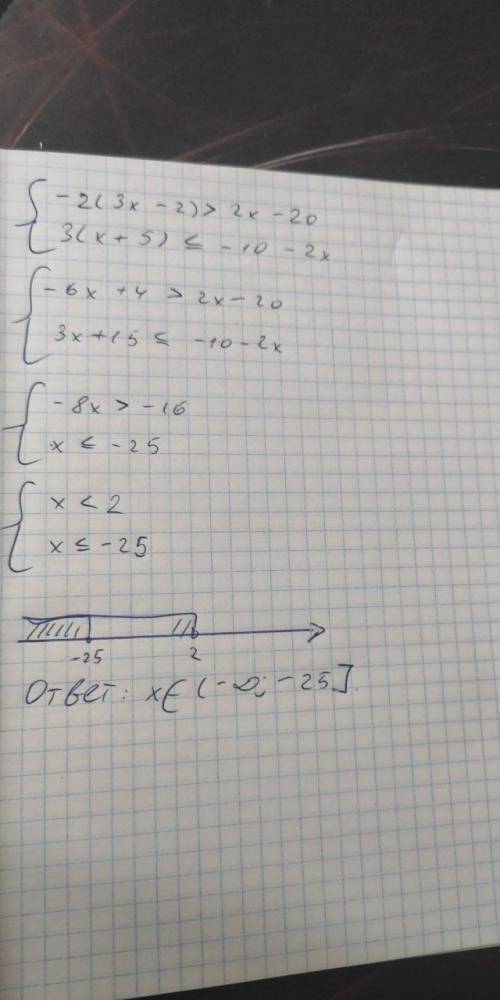 -2(3x-2)> 2x-20
3(x+5) ≤ -10-2x
-6x+4 > 2x-20
3x+15 ≤ -10-2x
-8x > -16
x ≤ -25
x < 2
x ≤ -25
-25 2
Ответ: x∈(-∞; -25].